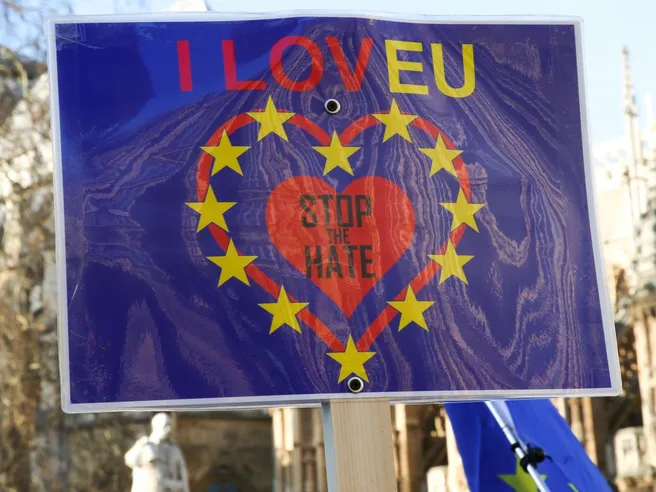 I LOVEU
STOP
THE
HATE